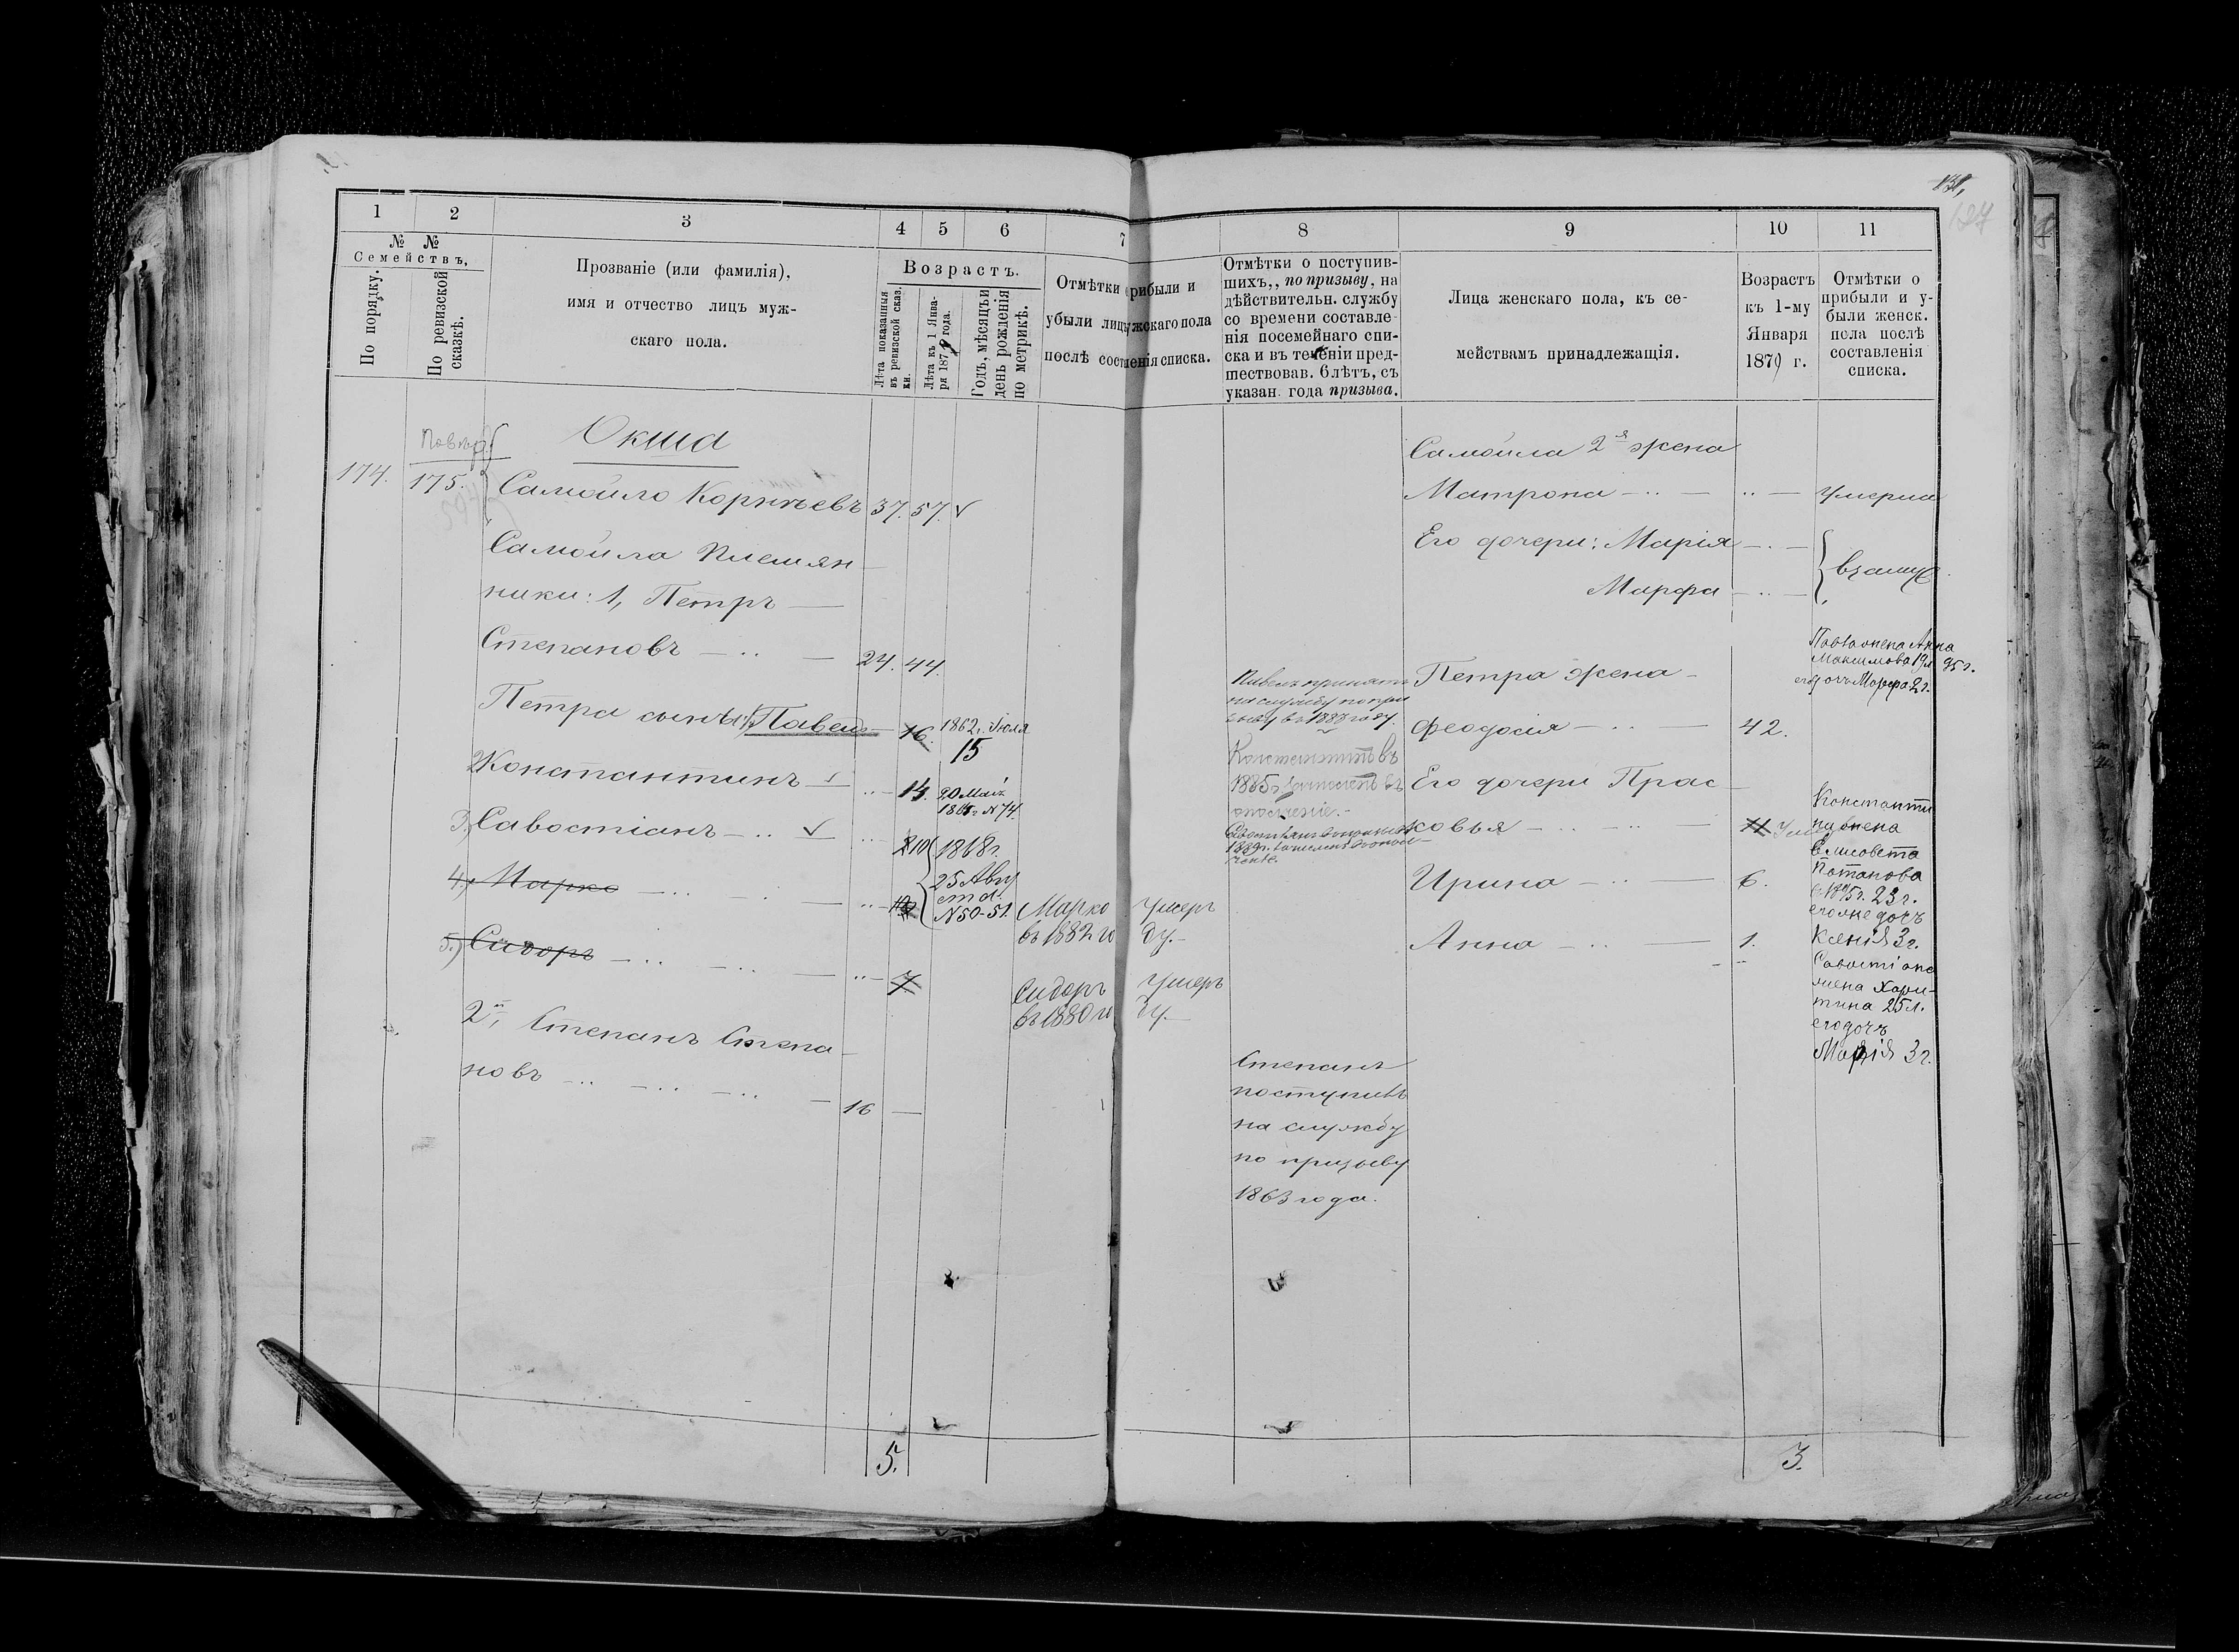 131,
127
1
2
3
4
5
6
7
8
9
10
11
№ №
Семействъ,
По порядку.
По ревизской
сказкѣ.
Прозваніе (или фамилія),
имя и отчество лицъ муж-
скаго пола.
Возрастъ.
Лѣта показанныя
въ ревизской сказ.
ки.
Лѣта къ 1 Янва-
ря 1879 года.
Годъ, мѣсяцъ и
день рожденія
по метрикѣ.
Отмѣтки прибыли и
убыли лицъ мужскаго пола
послѣ составленія списка.
Отмѣтки о поступив-
шихъ,, по призыву, на
дѣйствительн. службу
со времени составле-
нія посемейнаго спи-
ска и въ теченіи пред-
шествовав. 6 лѣтъ, съ
указан. года призыва.
Лица женскаго пола, къ се-
мействамъ принадлежащія.
Возрастъ
къ 1-му
Января
1879 г.
Отмѣтки о
прибыли и у-
были женск.
пола послѣ
составленія
списка.
Окша
174. 175. Самойло Корнѣевъ 37. 57.
Самойла Племян
ники: 1, Петръ
Степановъ 24. 44.
Петра сынъ: 1) Павелъ 16. 1862 г. Іюля
15
2 Константинъ 14. 20 Мая
1865 г. N 74.
3. Савостіанъ 10 1868 г.
25 Авгу
ста.
N 50-51.
4. Марко
Марко умеръ
въ 1882 го ду.
5.) Сидоръ 7.
Сидоръ умеръ
въ 1880 го ду.
2й, Степанъ Степа
новъ 16
5.
Павелъ принятъ
на службу по при
зыву въ 1883 году.
Константинъ въ
1885 г. зачисленъ въ
ополченіе.
1889 г. зачисленъ
Степанъ
поступивъ
на службу
по призыву
1863 года.
Самойла 2я жена
Матрона умерла
Его дочери: Марія
Марфа
взамуж.
Петра жена
Феодосія 42.
Его дочери Прас
ковья 11
Ирина 6.
Анна 1.
3.
Павла жена Анна
Максимова 19 л 95 г.
его дочь Марфа 2 г.
Константи
на жена
Елисовета
Потапова
23 г.
дочъ
Ксенія 3 г.
Савостіана
жена Хари-
тина 25 л.
его дочъ
Марія 3 г.